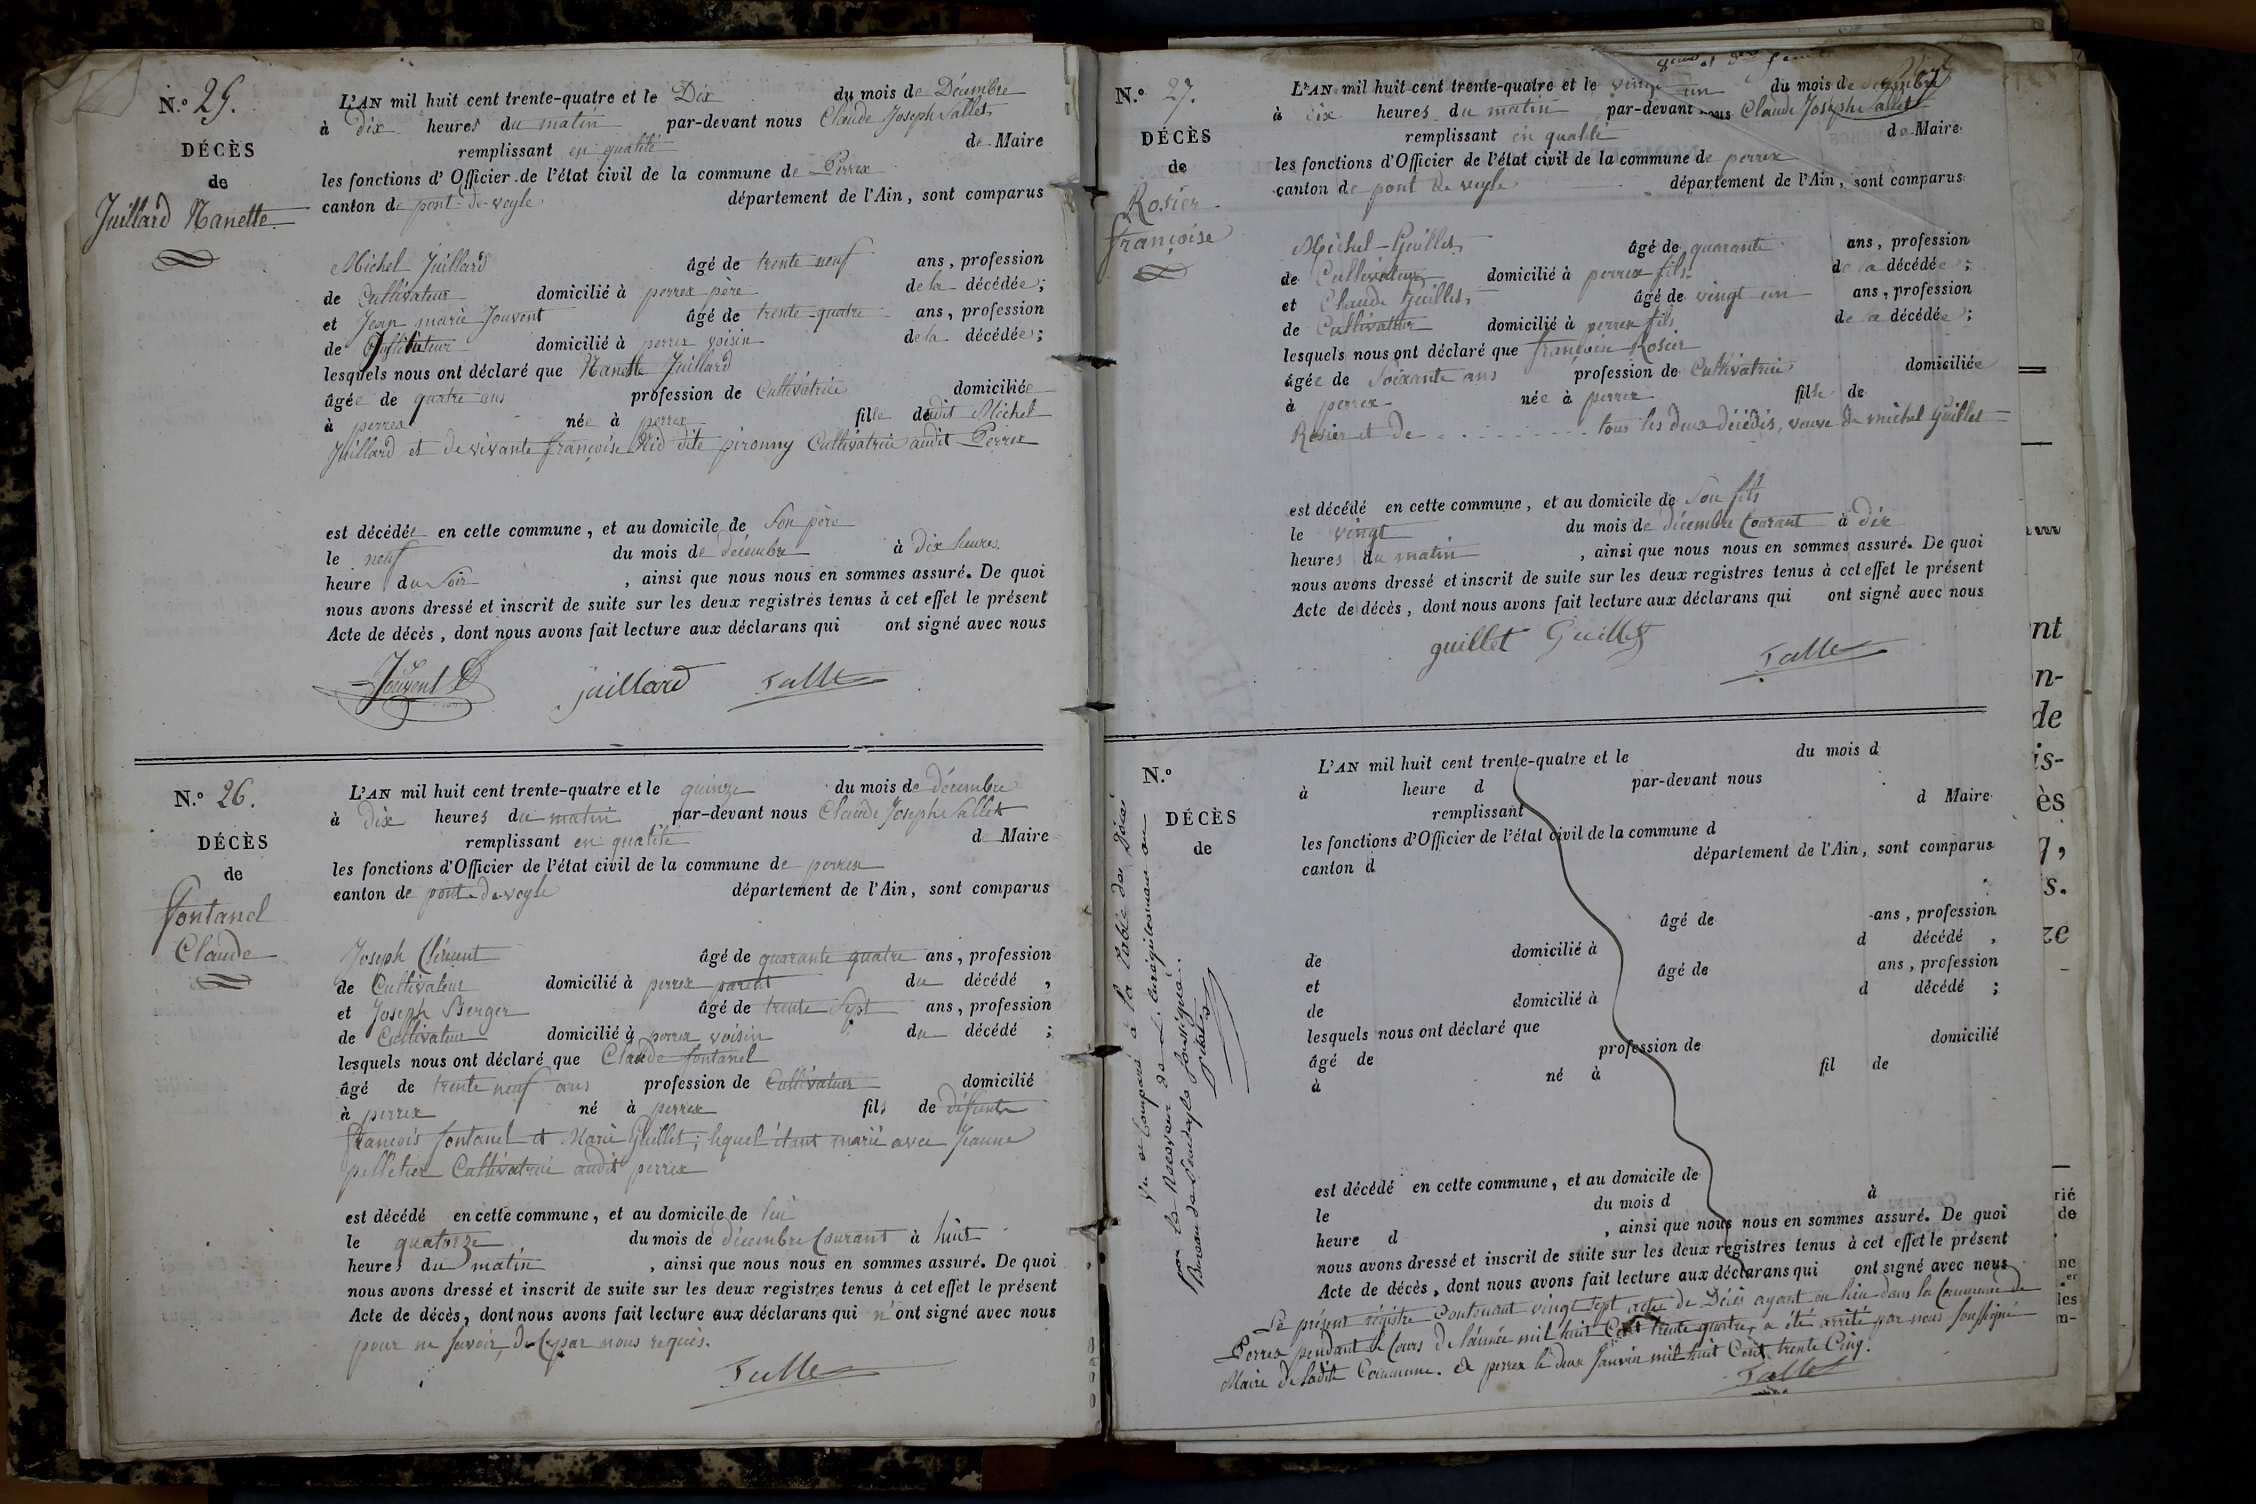 N.º 25.
DÉCÈS
de
Juillard Nanette.
L'AN mil huit cent trente-quatre et le Dix du mois de Décembre
à dix heures du matin par-devant nous Claude Joseph Sallet
remplissant en qualité de Maire
les fonctions d'Officier de l'état civil de la commune de Perrex
canton de pont-de-veyle département de l'Ain, sont comparus
Michel Juillard âgé de trente neuf ans, profession
de Cultivateur domicilié à perrex père de la décédée;
et Jean marie Jouvent âgé de trente-quatre ans, profession
de Cultivateur domicilié à perrex voisin de la décédée;
lesquels nous ont déclaré que Nanette Juillard
âgée de quatre ans profession de Cultivatrice domiciliée
à perrex née à perrex fille dudit Michel
Juillard et de vivante françoise dite pironny Cultivatrice audit Perrex
est décédée en cette commune, et au domicile de Son père
le neuf du mois de décembre à dix heures
heure du Soir, ainsi que nous nous en sommes assuré. De quoi
nous avons dressé et inscrit de suite sur les deux registres tenus à cet effet le présent
Acte de décès, dont nous avons fait lecture aux déclarans qui ont signé avec nous
Jouvent juillard Sallet
N.º 26.
DÉCÈS
de
Fontanel
Claude
L'AN mil huit cent trente-quatre et le quinze du mois de décembre
à Dix heures du matin par-devant nous Claude Joseph Sallet
remplissant en qualité de Maire
les fonctions d'Officier de l'état civil de la commune de perrex
canton de pont-de-veyle département de l'Ain, sont comparus
Joseph Clément âgé de quarante quatre ans, profession
de Cultivateur domicilié à perrex parent du décédé,
et Joseph Berger âgé de trente Sept ans, profession
de Cultivateur domicilié à perrex voisin du décédé;
lesquels nous ont déclaré que Claude fontanel
âgé de trente neuf ans profession de Cultivateur domicilié
à perrex né à perrex fils de défunts
francois fontanel et Marie Guillet; lequel étant marié avec Jeanne
pelletier Cultivatrice audit perrex
est décédé en cette commune, et au domicile de lui
le quatorze du mois de décembre Courant à huit
heures du matin, ainsi que nous nous en sommes assuré. De quoi
nous avons dressé et inscrit de suite sur les deux registres tenus à cet effet le présent
Acte de décès, dont nous avons fait lecture aux déclarans qui n'ont signé avec nous
pour ne Savoir, de Ce par nous requis.
Sallet
N.º 27.
DÉCÈS
de
Rosier
françoise
L'AN mil huit cent trente-quatre et le vingt un du mois de décembre
à dix heures du matin par-devant nous Claude Joseph Sallet
remplissant en qualité de Maire
les fonctions d'Officier de l'état civil de la commune de perrex
canton de pont de veyle département de l'Ain, sont comparus
Michel Guillet âgé de quarante ans, profession
de Cultivateur domicilié à perrex fils de la décédée;
et Claude Guillet, âgé de vingt un ans, profession
de Cultivateur domicilié à perrex fils de la décédée;
lesquels nous ont déclaré que françoise Rosier
âgée de Soixante ans profession de Cultivatrice domiciliée
à perrex née à perrex fille de
Rosier et de . . . . . . . . tous les deux décédés, veuve de michel Guillet
est décédé en cette commune, et au domicile de Son fils
le vingt du mois de décembre Courant à dix
heures du matin, ainsi que nous nous en sommes assuré. De quoi
nous avons dressé et inscrit de suite sur les deux registres tenus à cet effet le présent
Acte de décès, dont nous avons fait lecture aux déclarans qui ont signé avec nous
guillet Guillet Sallet
N.º
DÉCÈS
de
L'AN mil huit cent trente-quatre et le du mois d
à heure d par-devant nous
remplissant d Maire
les fonctions d'Officier de l'état civil de la commune d
canton d département de l'Ain, sont comparus
âgé de ans, profession
de domicilié à d décédé,
et âgé de ans, profession
de domicilié à d décédé;
lesquels nous ont déclaré que
âgé de profession de domicilié
à né à fil de
est décédé en cette commune, et au domicile de
le du mois d à
heure d, ainsi que nous nous en sommes assuré. De quoi
nous avons dressé et inscrit de suite sur les deux registres tenus à cet effet le présent
Acte de décès, dont nous avons fait lecture aux déclarans qui ont signé avec nous
Le présent régistre Contenant vingt Sept actes de Décès ayant eu lieu dans la Commune de
Perrex pendant le Cours de l'année mil huit Cent trente quatre, a été arrêté par nous Soussigné
Maire de ladite Commune. à perrex le deux Janvier mil huit Cent trente Cinq.
Sallet
Vu et Comparé à la Table des Décès
par le Receveur de l'Enregistrement au
Bureau de Pontdeveyle Soussigné.